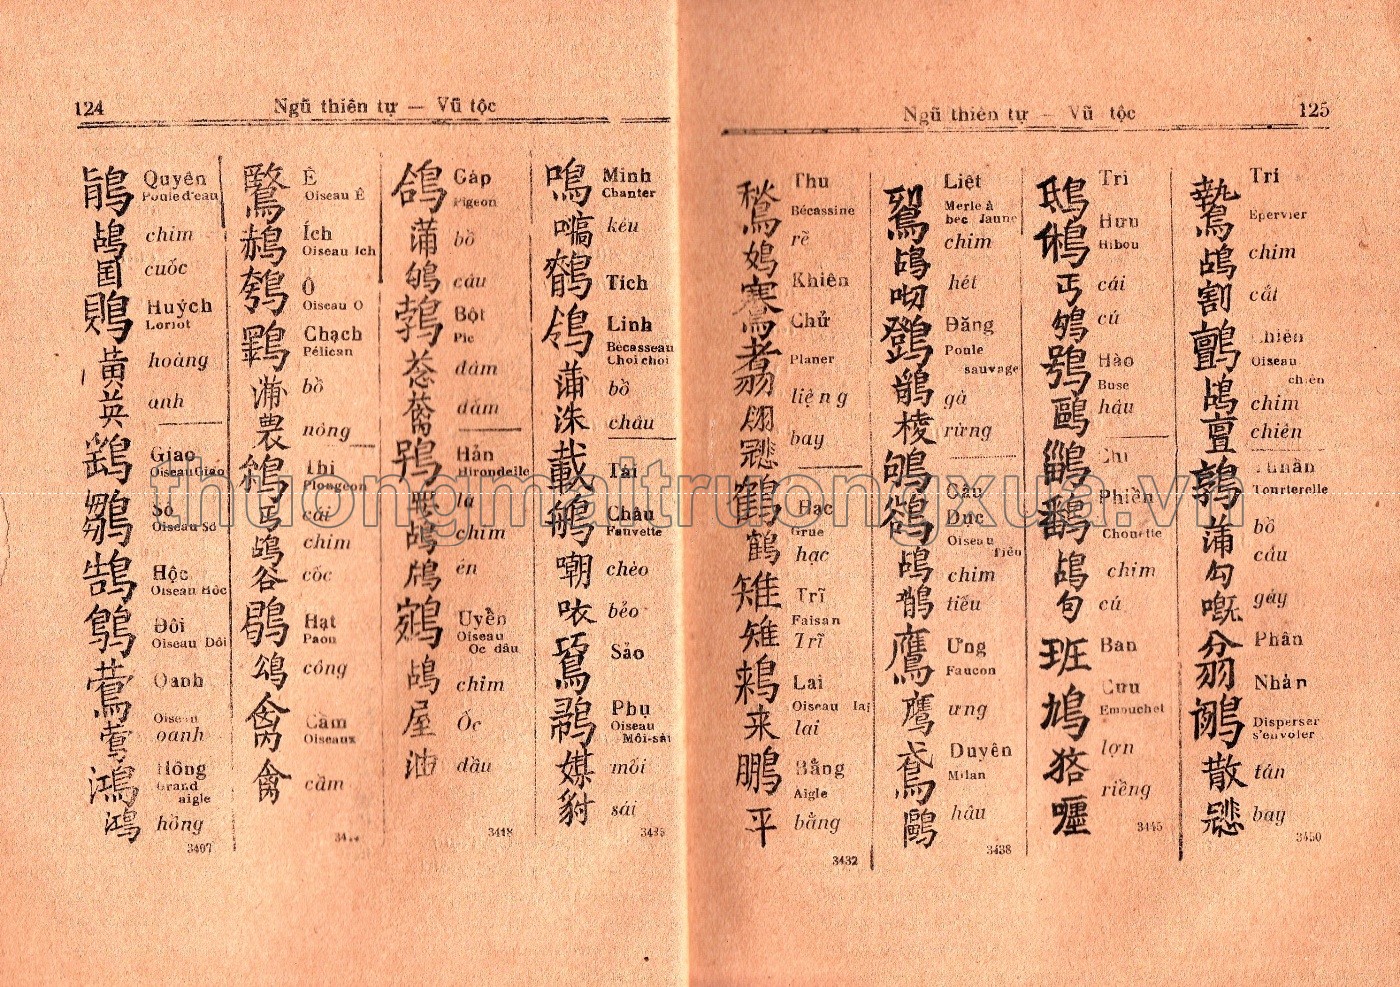 124
Ngũ thiên tự — Vũ tộc
鵑 Quyên
Poule d'eau
鴣 chim
国 cuốc
Huých
Loriot
黃 hoàng
英 anh
Giao
Oiseau Giao
Sồ
Oiseau Sồ
鵠 Hộc
Oiseau Hôc
Đôi
Oiseau Dôi
鶯 Oanh
Oiseau
鶯 oanh
鴻 Hồng
Grand
aigle
鴻 hồng
3407
鷖 Ê
Oiseau Ê
Ích
Oiseau Ich
Ô
Oiseau O
Chạch
Pélican
蒲 bồ
農 nông
Thi
Plongeon
丐 cái
鴣 chim
谷 cốc
鶡 Hạt
Paon
鵼 công
禽 Cầm
Oiseaux
禽 cầm
3414
鴿 Cáp
Pigeon
蒲 bồ
câu
鵓 Bột
Pie
dâm
dăm
Hản
Hirondelle
là
鴣 chim
én
鵷 Uyên
Oiseau
Oc dâu
鴣 chim
屋 Ốc
油 dầu
3418
鳴 Minh
Chanter
嚆 kêu
Tích
鴒 Linh
Bécasseau
Choi choi
蒲 bồ
洙 châu
載 Tái
Châu
Fauvette
嘲 chèo
bẻo
Sảo
Phụ
Oiseau
Môi-sai
媒 môi
豺 sái
3425
Ngũ thiên tự — Vũ tộc
125
鶖 Thu
Bécassine
rẽ
Khiên
翥 Chử
Planer
liệng
bay
鶴 Hạc
Grue
鶴 hạc
雉 Trĩ
Faisan
雉 Trĩ
鶆 Lai
Oiseau lai
来 lai
鵬 Bằng
Aigle
平 bằng
3432
鴷 Liệt
Merle à
bec Jaune
鴣 chim
hét
Đăng
Poule
sauvage
gà
棱 rừng
Câu
鵒 Dục
Oiseau
Tiêu
鴣 chim
tiếu
鷹 Ưng
Faucon
鷹 ưng
鳶 Duyên
Milan
鷗 hâu
3438
鴟 Tri
鵂 Hưu
Hibou
丐 cái
cú
鴞 Hào
Buse
鷗 hâu
鶅 Chi
鷭 Phiền
Chouette
鴣 chim
句 cú
班 Ban
鳩 Cưu
Emouchet
lợn
riềng
3445
鷙 Tri
Epervier
鴣 chim
割 cắt
鸇 Chiên
Oiseau
chiên
鴣 chim
亶 chiên
鶉 Thuần
Tourterelle
蒲 bồ
勾 câu
嘅 gáy
翂 Phân
鷴 Nhàn
Disperser
s'envoler
散 tán
bay
3450
thuongmaitruongxua.vn